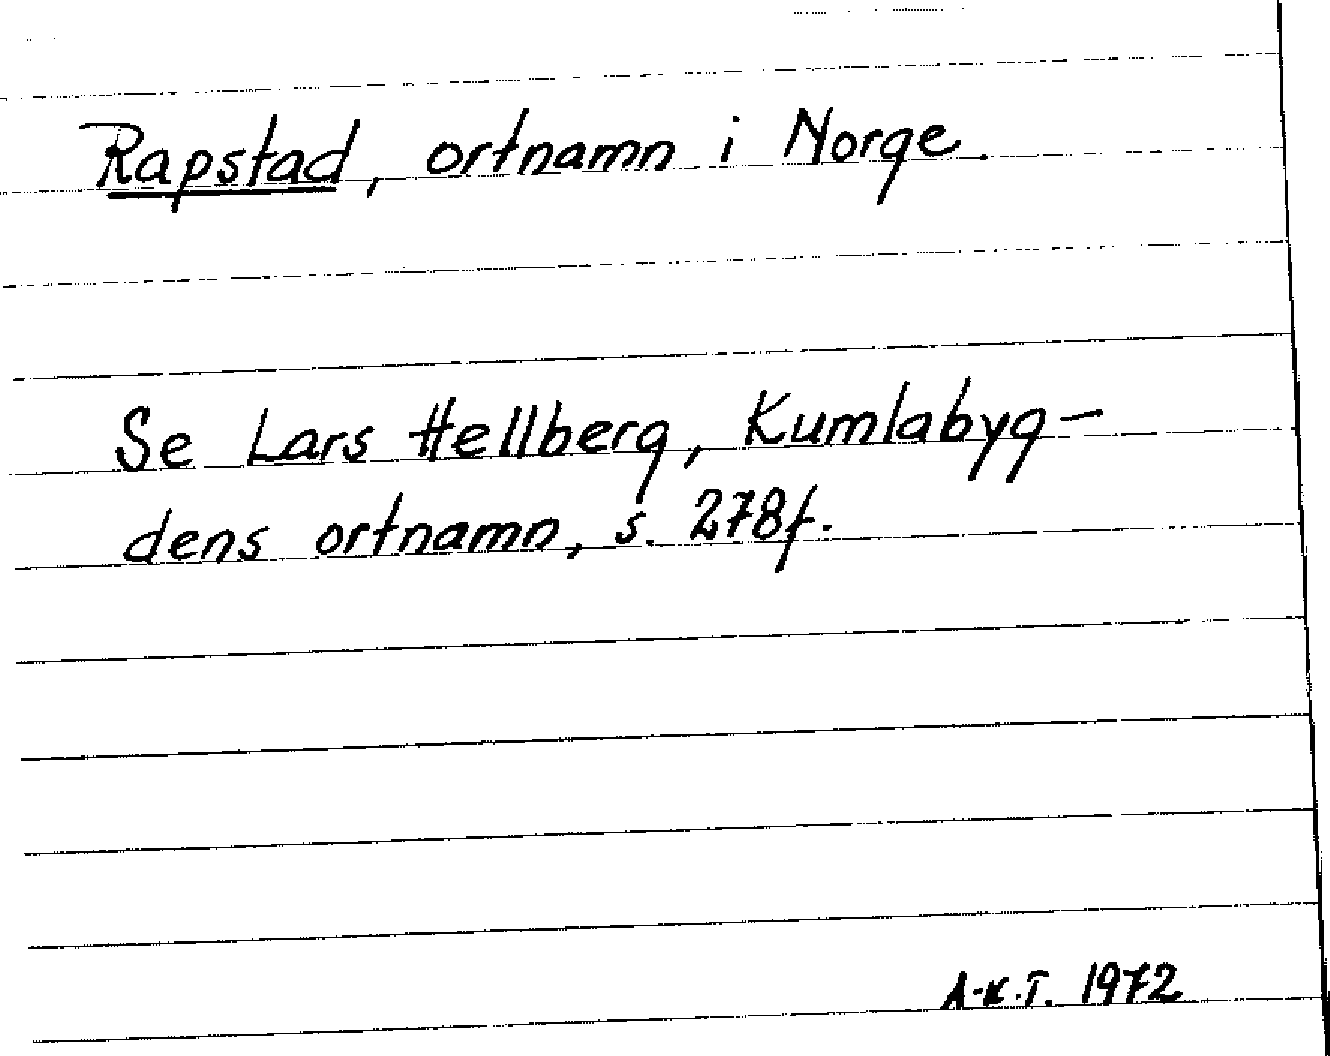 Rapstad, ortnamn i Norge.
Se Lars Hellberg, Kumlabyg-
dens ortnamn, s. 278f.
A-K.T. 1972